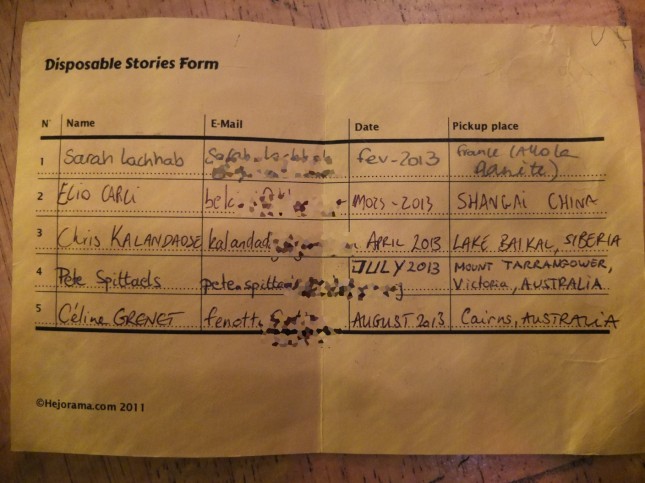 Disposable Stories Form
N° Name E-Mail Date Pickup place
1 Sarah Lachhab fev-2013 France (Allo la
Planète)
2 ELIO CARLI belc MARS-2013 SHANGAI CHINA
3 Chris KALANDADSE kalandad APRIL 2013 LAKE BAIKAL, SIBERIA
4 Pete Spittaels pete.spittae JULY 2013 MOUNT TARRANGOWER,
Victoria, AUSTRALIA
5 Céline GRENET fenott AUGUST 2013 Cairns, AUSTRALIA
©Hejorama.com 2011